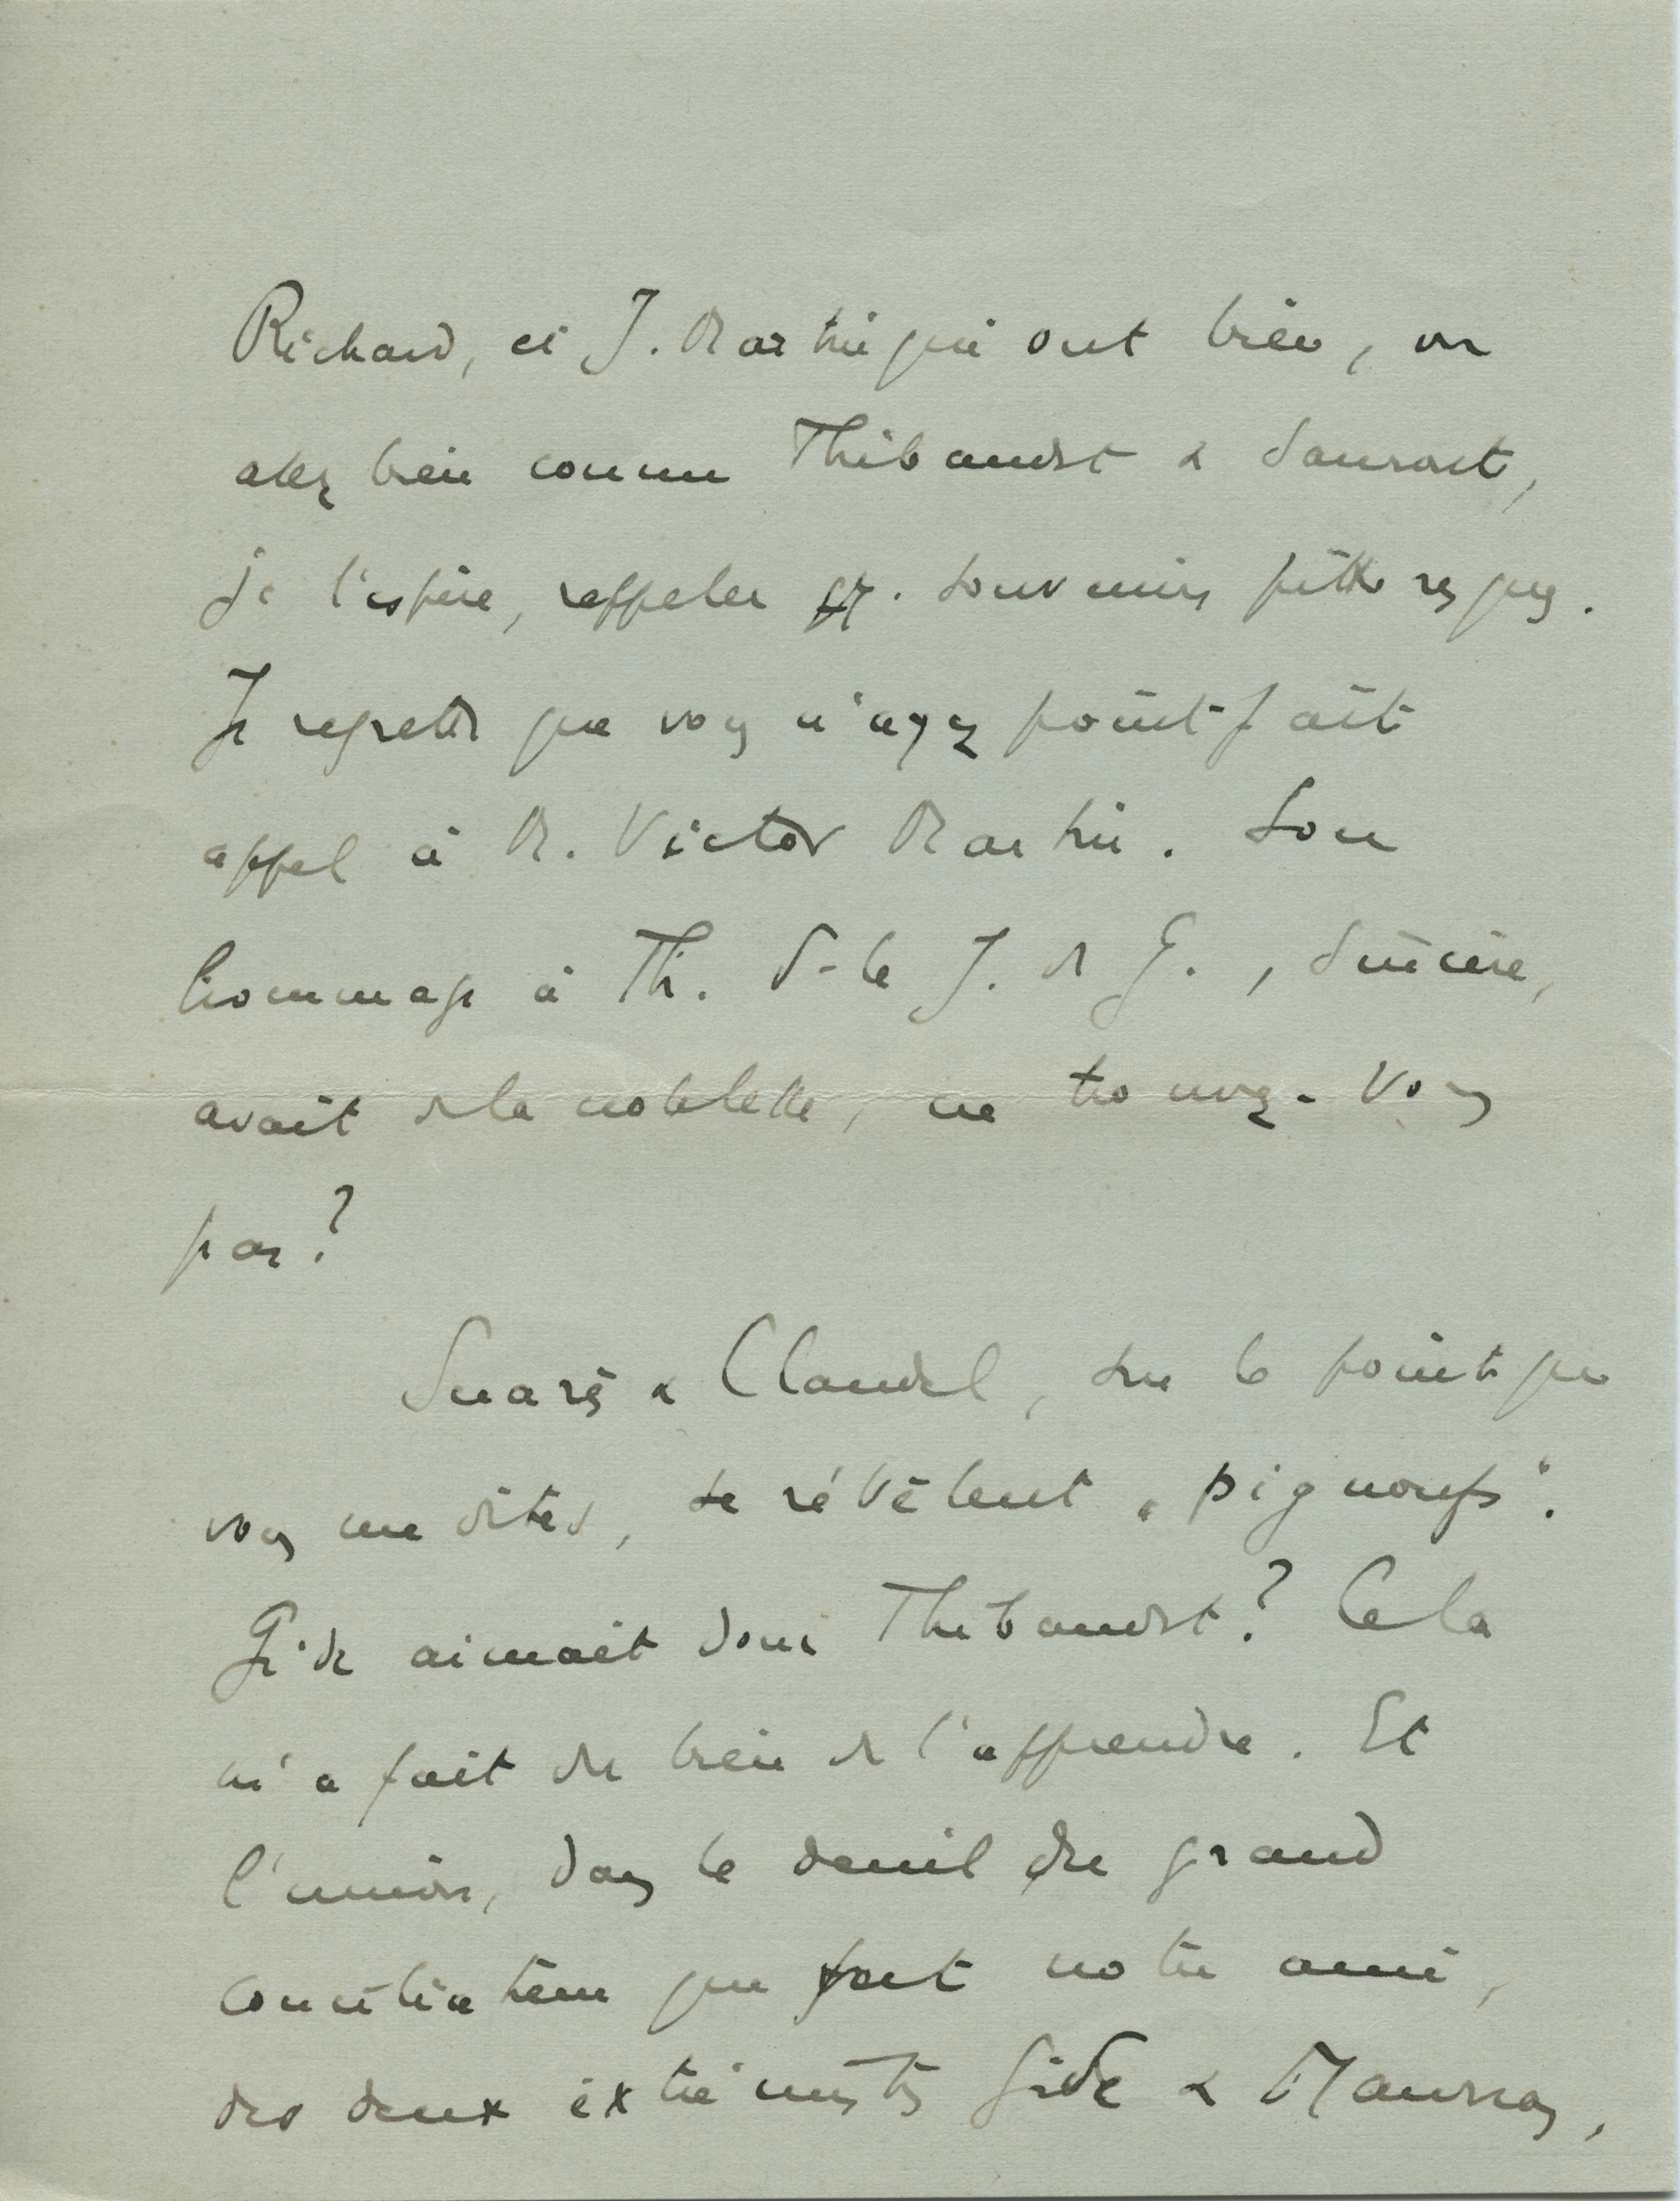 Richard, et J. Martin qui ont bien, ou
assez bien connu Thibaudet &
je l'espère, rappeler qq. souvenirs pittoresques.
Je regrette que vous n'ayez point fait
appel à M. Victor Martin. Son
hommage à Th. d. le J. de G., sincère,
avait de la noblesse, ne trouvez-vous
pas?
Suarès & Claudel, sur le point que
vous me dites, se révèlent "pignoufs".
Gide aimait donc Thibaudet? Cela
m'a fait du bien de l'apprendre. Et
l'union, dans le deuil du grand
conciliateur que fut notre ami,
des deux extrémistes Gide & Maurras,